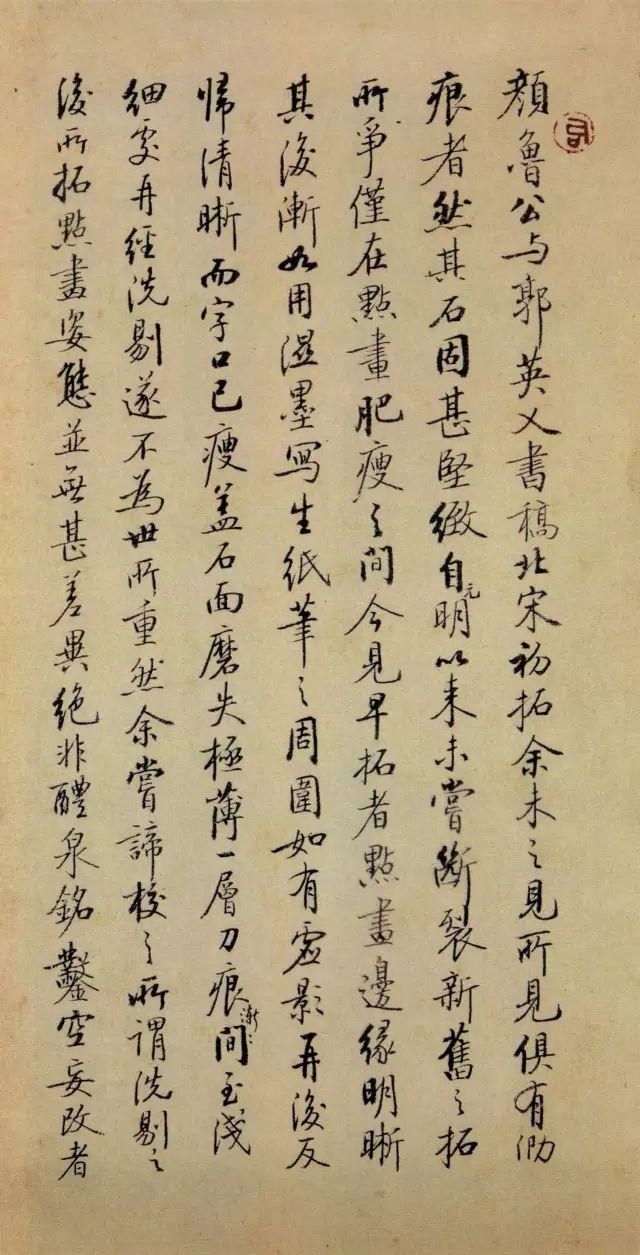 顏魯公与郭英乂書稿北宋初拓余未之見所見俱有泐
痕者然其石固甚堅緻自元明以来未嘗斷裂新舊之拓
所爭僅在點畫肥瘦之間今見早拓者點畫邊緣明晰
其後漸如用濕墨寫生紙筆之周圍如有虛影再後反
帰清晰而字口已瘦盖石面磨失極薄一層刀痕漸漸間至淺
細處再經洗剔遂不為世所重然余嘗諦校之所謂洗剔之
後所拓點畫姿態並無甚差異絕非醴泉銘鑿空妄改者